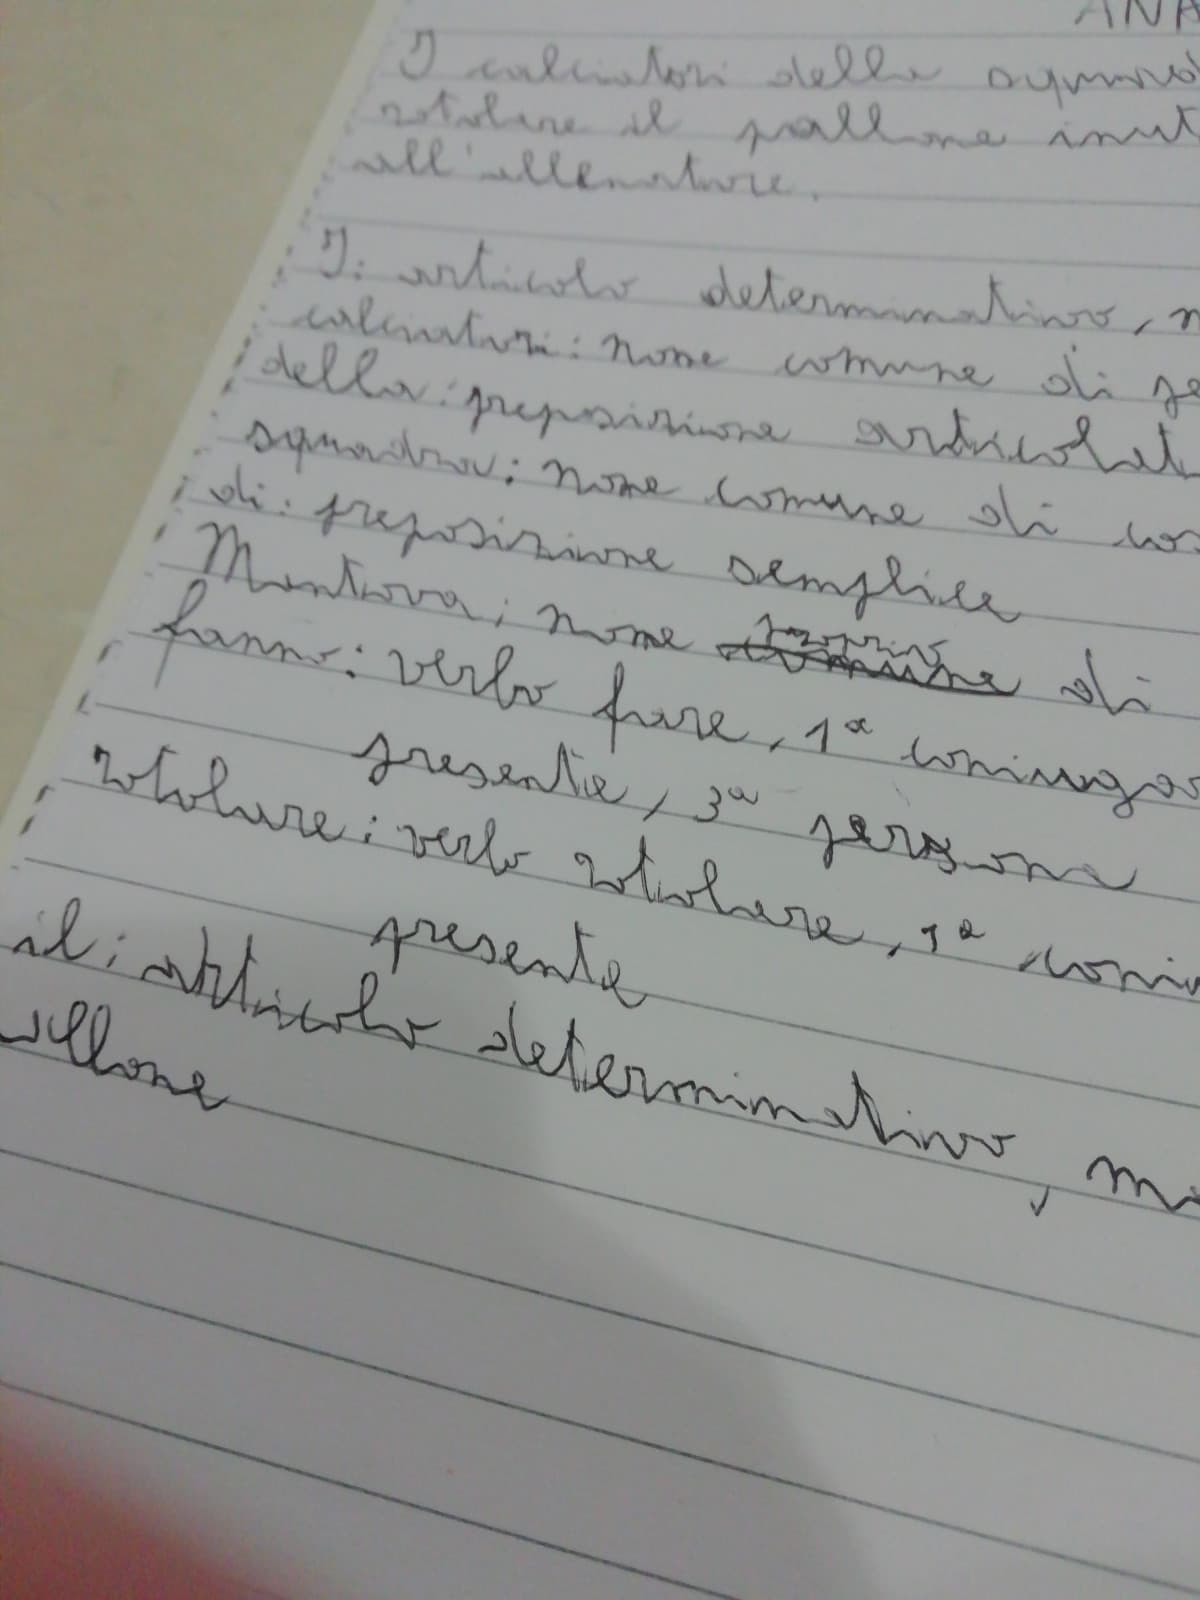 ANA
I calciatori della squad
rotolare il pallone inut
all'allenatore.
I: articolo determinativo, m
calciatori: nome comune di pe
della: preposizione articolat
squadra: nome comune di cos
di: preposizione semplice
Mantova: nome proprio di
fanno: verbo fare, 1ª coniugaz
presente, 3ª persona
rotolare: verbo rotolare, 1ª coniu
presente
il: articolo determinativo, ma
allone